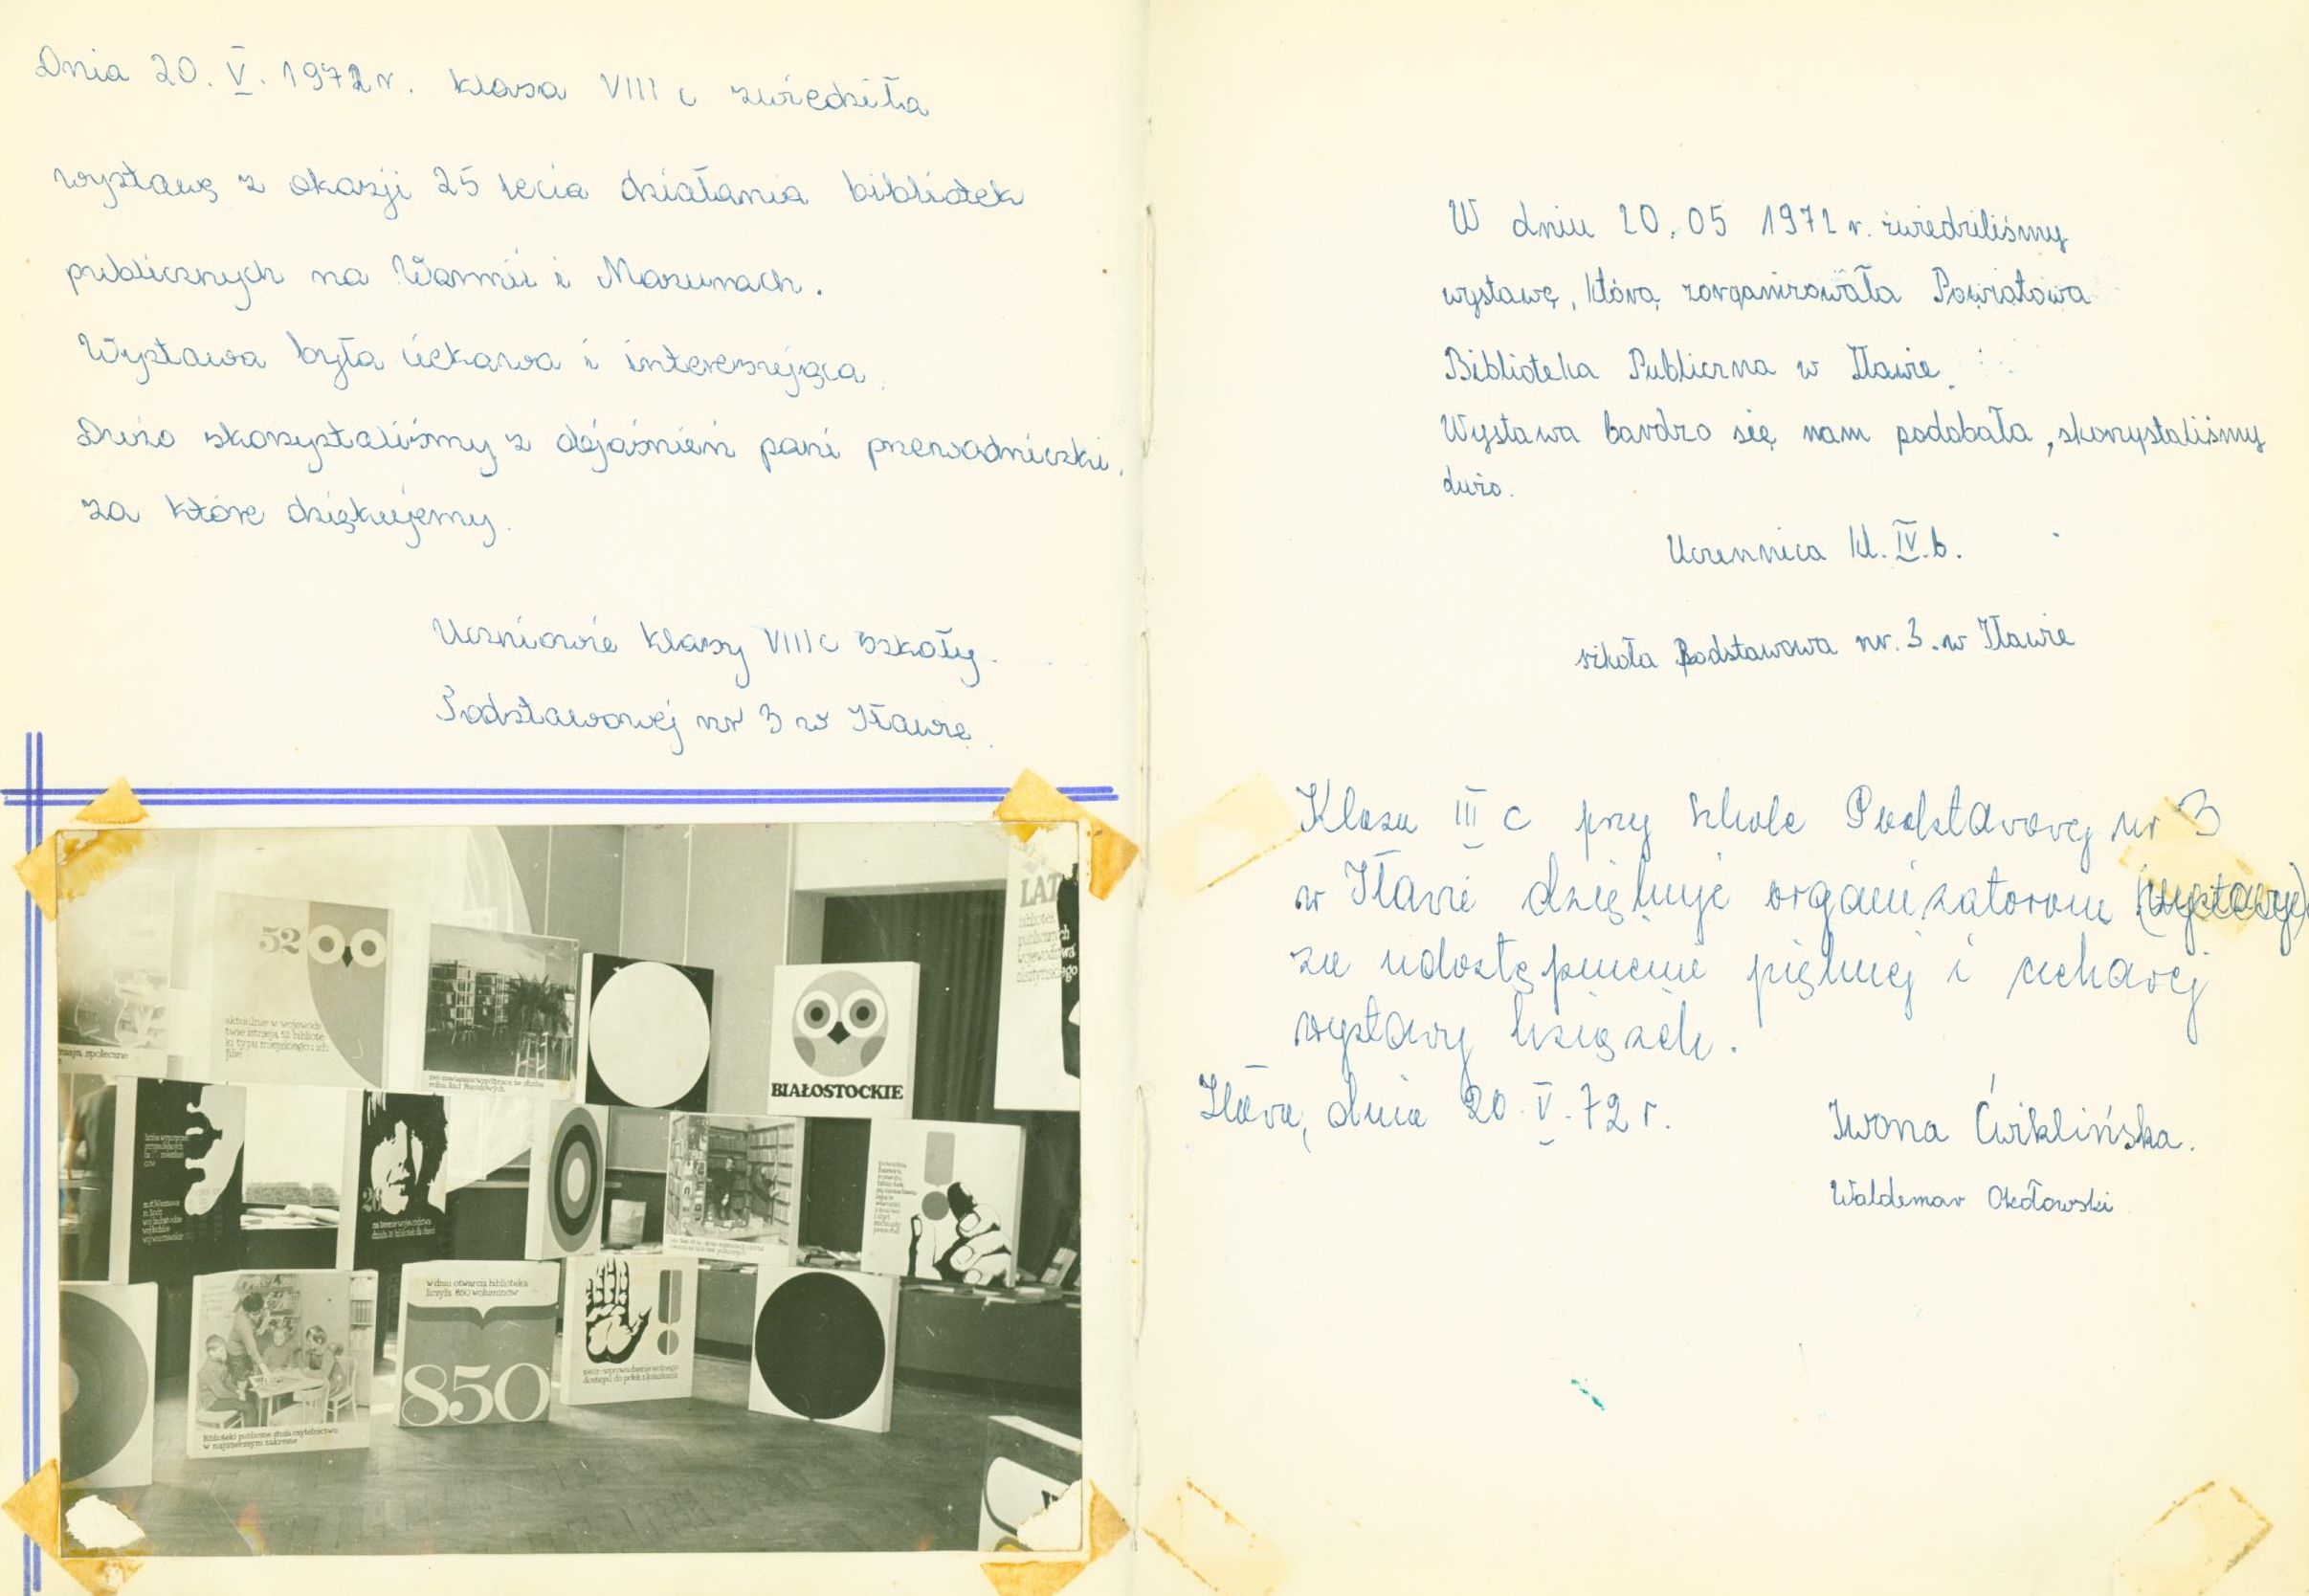 Dnia 20. V. 1972 r. klasa VIII c zwiedziła
wystawę z okazji 25 lecia działania bibliotek
publicznych na Warmii i Mazurach.
Wystawa była ciekawa i interesująca.
Dużo skorzystaliśmy z objaśnień pani przewodniczki,
za które dziękujemy.
Uczniowie klasy VIII c szkoły
Podstawowej nr 3 w Iławie.
52
aktualnie w wojewódz
twie istnieją 52 bibliote
ki typu miejskiego i ich
filie
BIAŁOSTOCKIE
LAT
bibliotek
publicznych
województwa
olsztyńskiego
w dniu otwarcia biblioteka
liczyła 850 woluminów
850
Biblioteki publiczne służą czytelnictwu
w najszerszym zakresie
dostępu do półek z książkami
W dniu 20.05 1972 r. zwiedziliśmy
wystawę, którą zorganizowała Powiatowa
Biblioteka Publiczna w Iławie.
Wystawa bardzo się nam podobała, skorzystaliśmy
dużo.
Uczennica kl. IV. b.
szkoła Podstawowa nr. 3. w Iławie
Klasa III c przy Szkole Podstawowej nr 3
w Iławie dziękuje organizatorom (wystawy)
za udostępnienie pięknej i ciekawej
wystawy książek.
Iława, dnia 20. V. 72 r.
Iwona Ćwiklińska.
Waldemar Okołowski